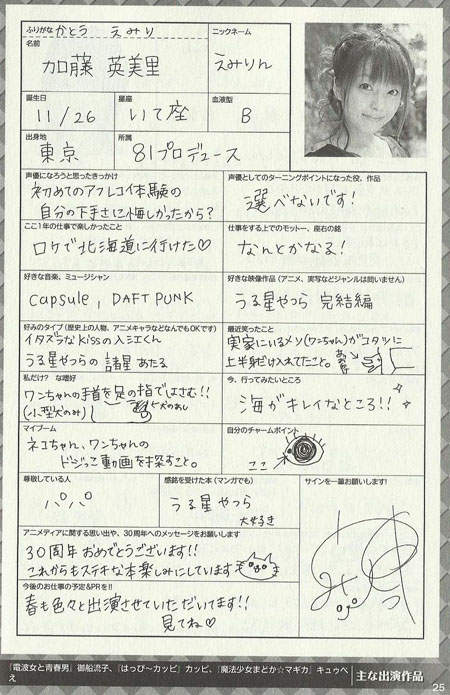 ふりがな かとう えみり
ニックネーム
名前
加藤 英美里
えみりん
誕生日
星座
血液型
11/26
いて座
B
出身地
所属
東京
81プロデュース
声優になろうと思ったきっかけ
声優としてのターニングポイントになった役、作品
初めてのアフレコ体験の
自分の下手さに悔しかったから?
選べないです!
ここ1年の仕事で楽しかったこと
仕事をする上でのモットー、座右の銘
ロケで北海道に行けた♡
なんとかなる!
好きな音楽、ミュージシャン
好きな映像作品(アニメ、実写などジャンルは問いません)
capsule, DAFT PUNK
うる星やつら 完結編
好みのタイプ(歴史上の人物、アニメキャラなどなんでもOKです)
最近笑ったこと
イタズラなKissの入江くん
うる星やつらの諸星あたる
実家にいるメソ(ワンちゃん)がコタツに
上半身だけ入れてたこと。
私だけ? な嗜好
今、行ってみたいところ
ワンちゃんの手首を足の指ではさむ!!
(小型犬のみ)
犬のあし
海がキレイなところ!!
マイブーム
自分のチャームポイント
ネコちゃん、ワンちゃんの
ドジっこ動画を探すこと。
ここ
尊敬している人
感銘を受けた本(マンガでも)
サインを一筆お願いします!
パパ
うる星やつら
大好き
アニメディアに関する思い出や、30周年へのメッセージをお願いします
30周年おめでとうございます!!
これからもステキな本楽しみにしています
今後のお仕事の予定&PRを!!
春も色々と出演させていただいてます!!
見てね♡
『電波女と青春男』御船流子、『はっぴ〜カッピ』カッピ、『魔法少女まどか☆マギカ』キュゥべえ
主な出演作品
25